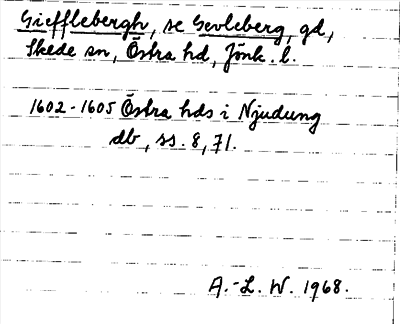 Giefflebergh, se Gevleberg, gd,
Skede sn, Östra hd, Jönk. l.
1602-1605 Östra hds i Njudung
db, ss. 8, 71.
A.-L. W. 1968.